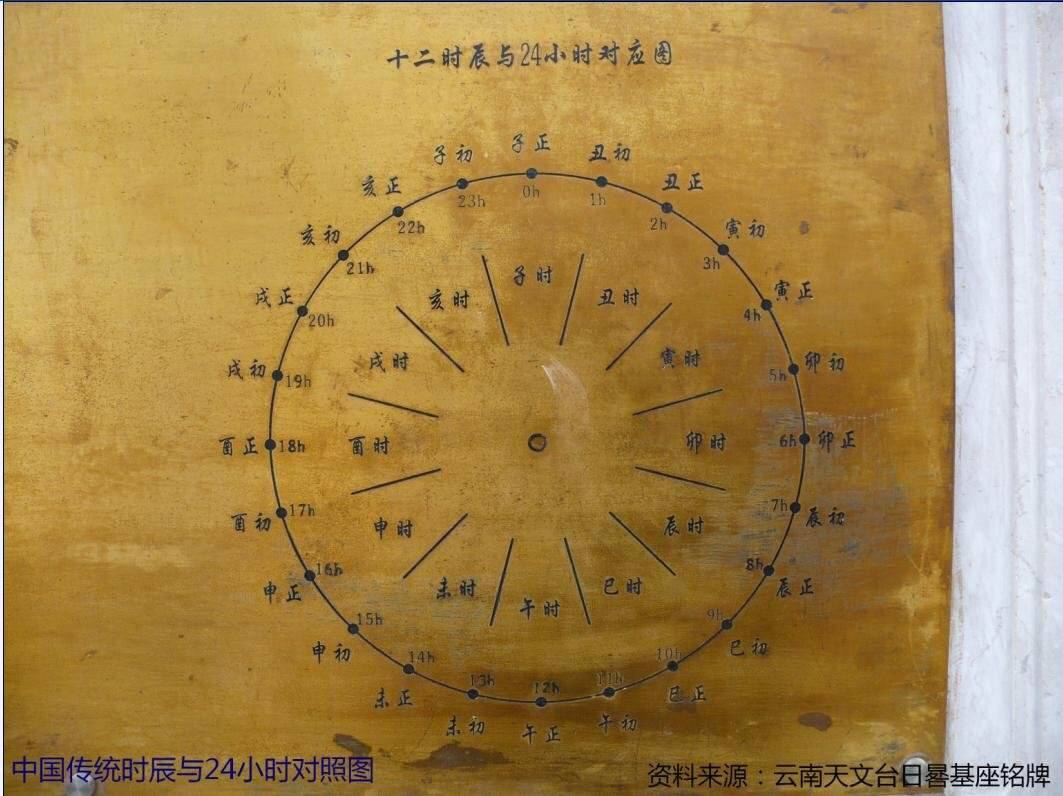 十二时辰与24小时对应图
子正
0h
丑初
1h
丑正
2h
寅初
3h
寅正
4h
卯初
5h
卯正
6h
辰初
7h
辰正
8h
巳初
9h
巳正
10h
午初
11h
午正
12h
未初
13h
未正
14h
申初
15h
申正
16h
酉初
17h
酉正
18h
戌初
19h
戌正
20h
亥初
21h
亥正
22h
子初
23h
子时
丑时
寅时
卯时
辰时
巳时
午时
未时
申时
酉时
戌时
亥时
中国传统时辰与24小时对照图
资料来源：云南天文台日晷基座铭牌